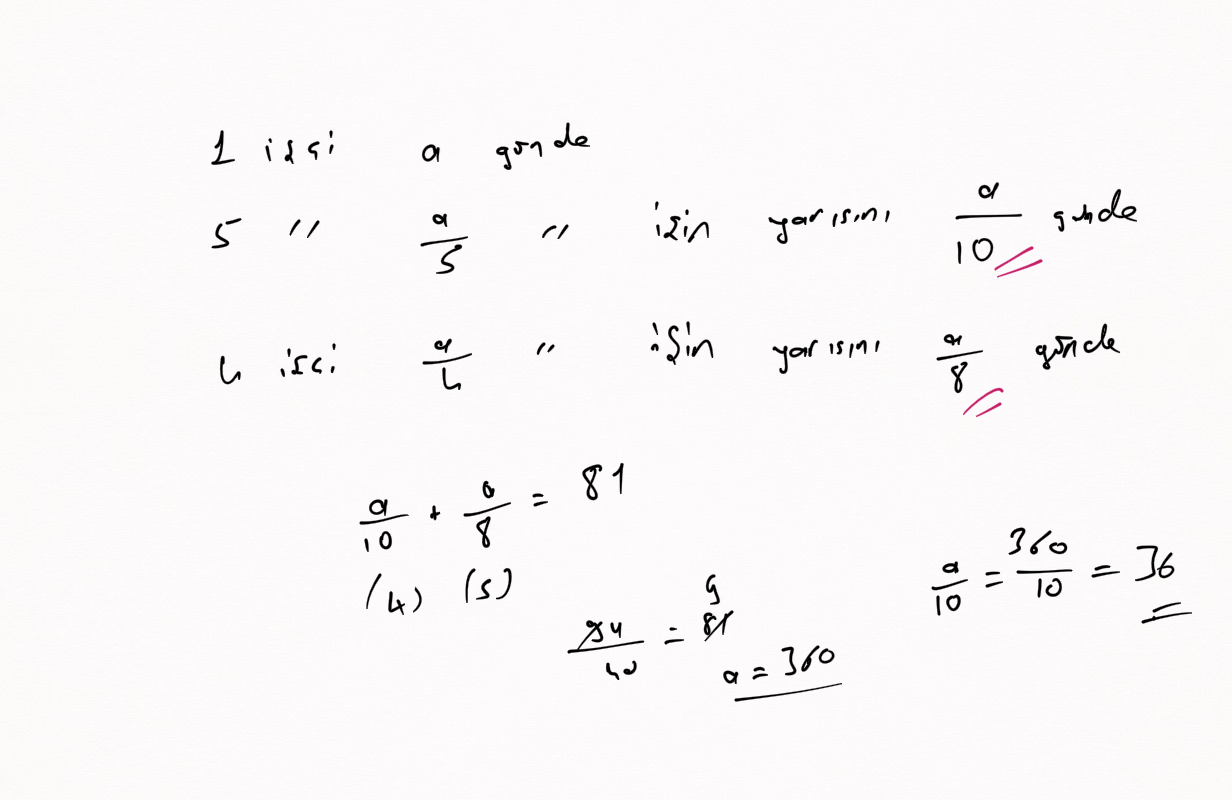 1 işçi a günde
5 " a/5 " işin yarısını a/10 günde
4 işçi a/4 " işin yarısını a/8 günde
a/10 + a/8 = 81
(4) (5)
9a/40 = 81 9
a = 360
a/10 = 360/10 = 36